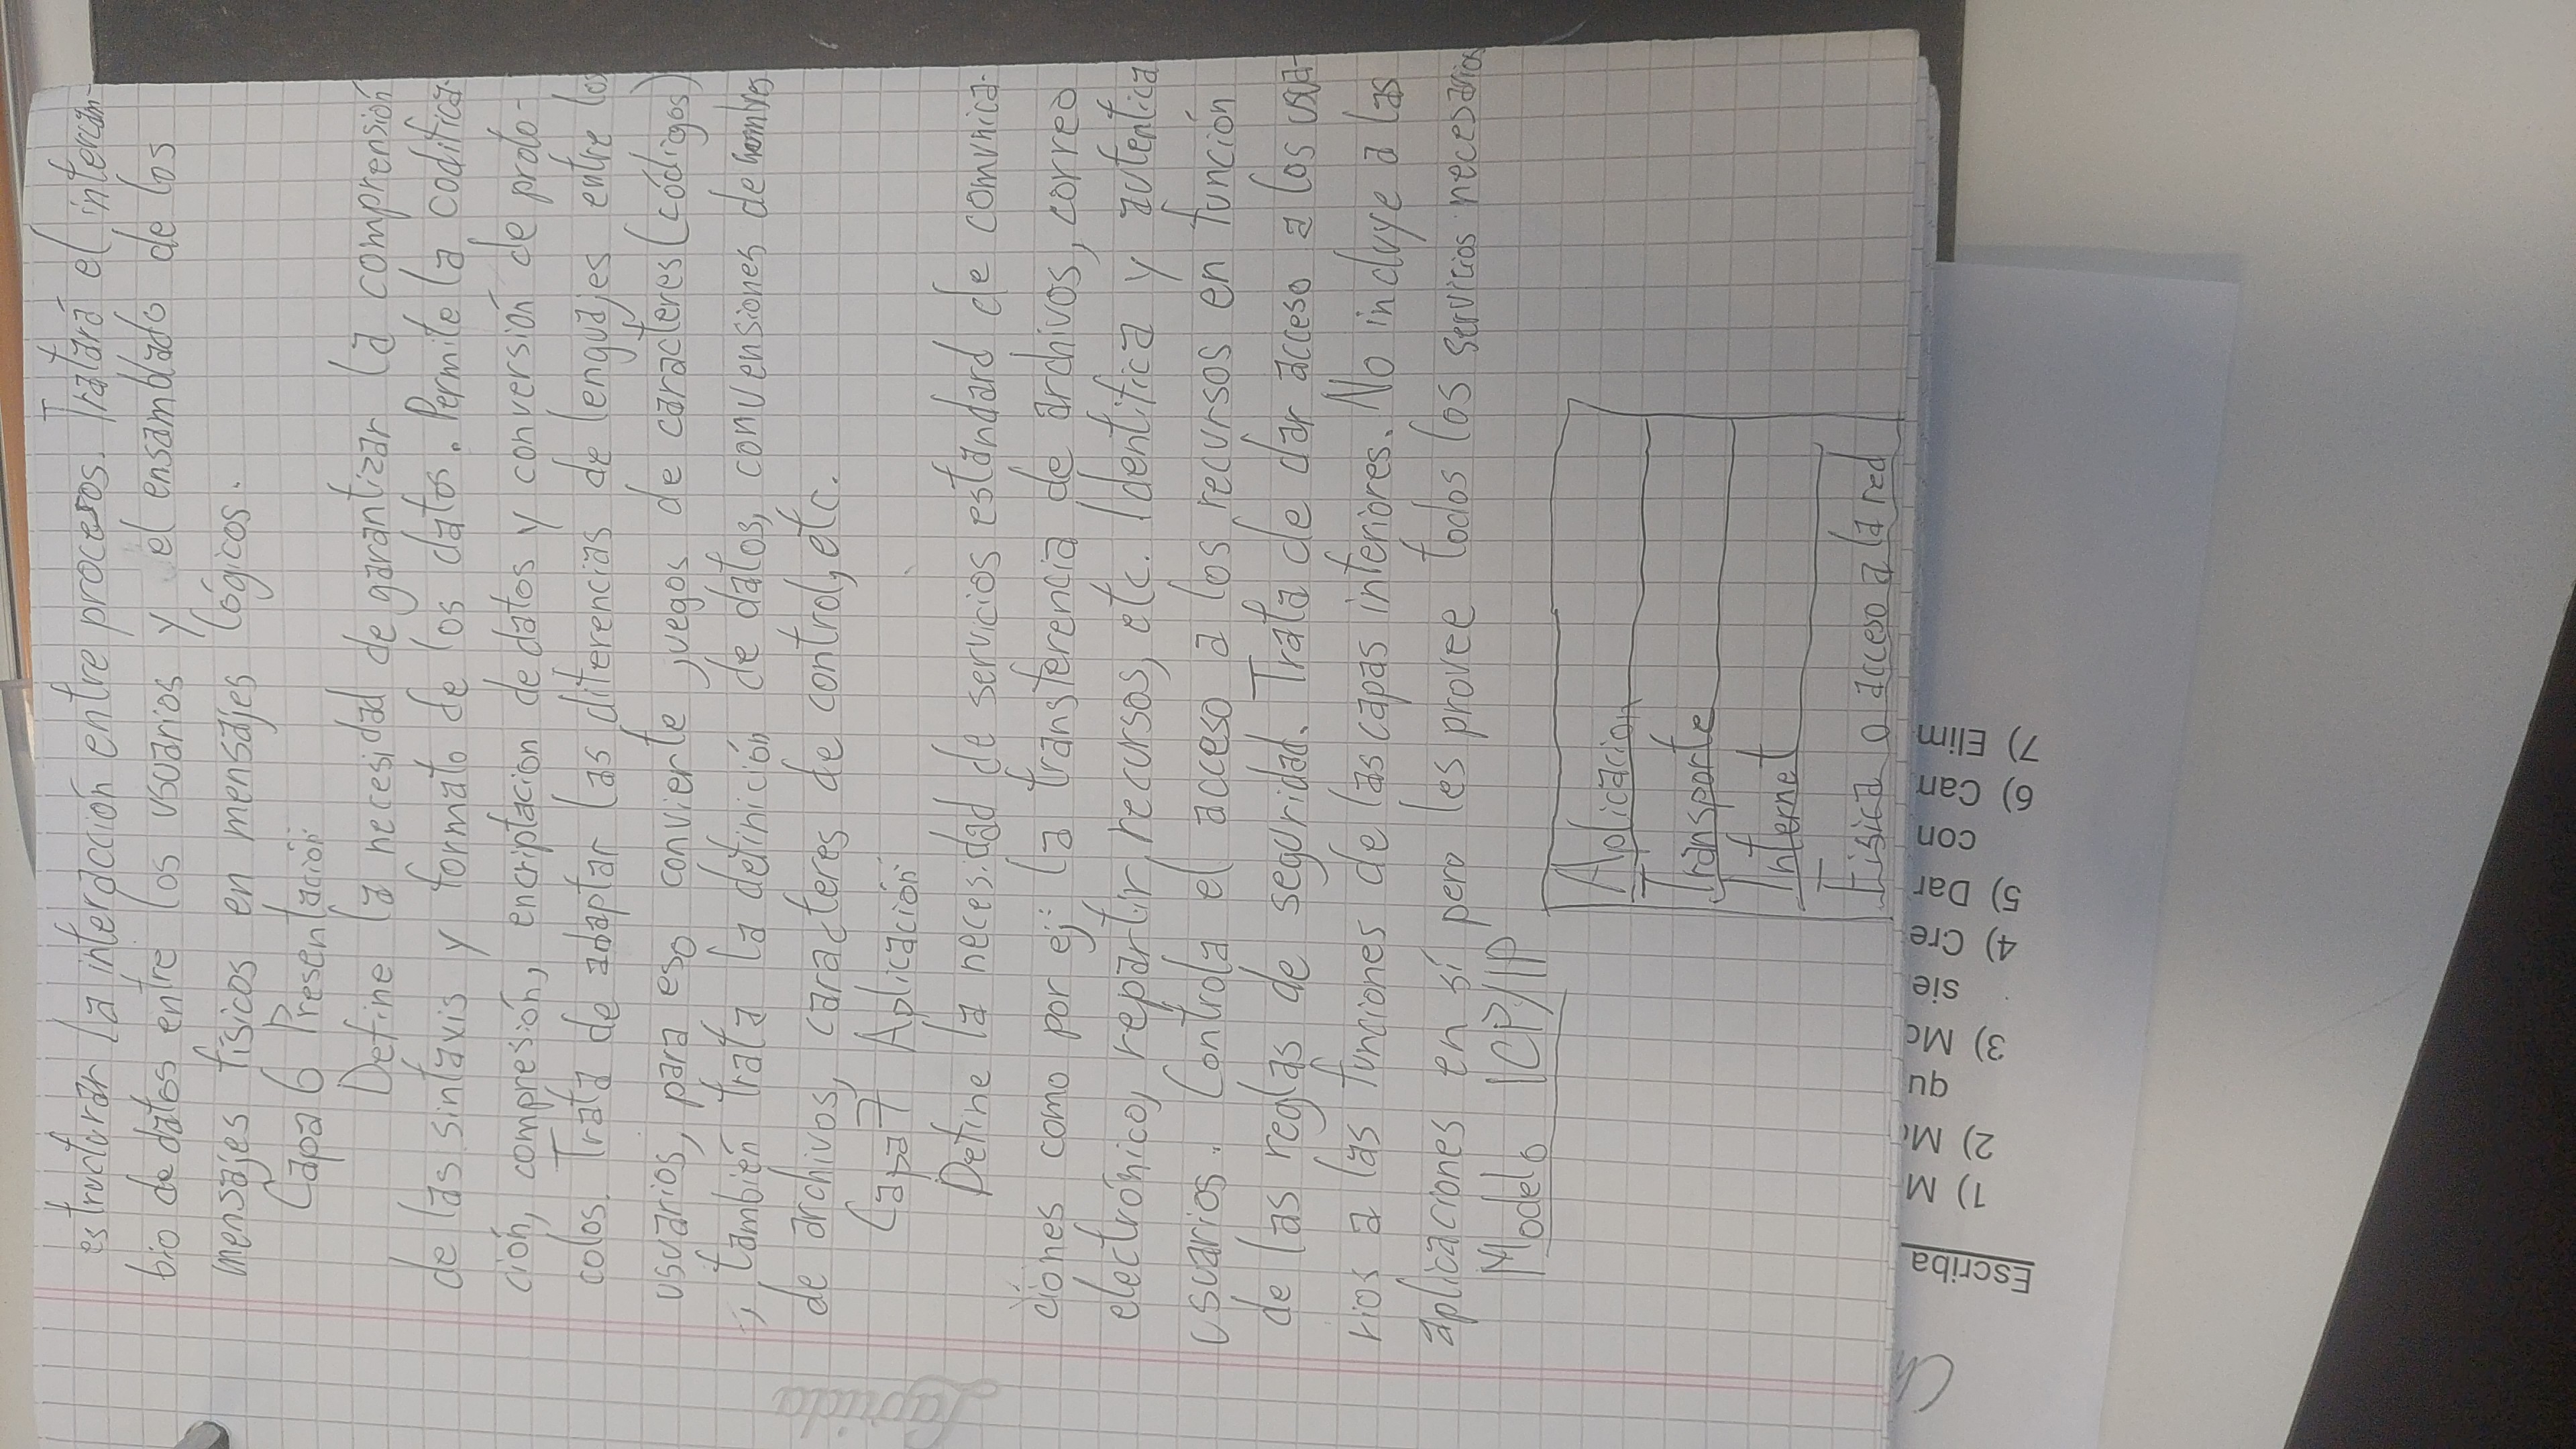 estructurar la interacción entre procesos. Tratará el intercam-
bio de datos entre los usuarios y el ensamblado de los
mensajes físicos en mensajes lógicos.
Capa 6 Presentación:
Define la necesidad de garantizar la comprensión
de las sintaxis y formato de los datos. Permite la codifica-
ción, compresión, encriptacion de datos y conversión de proto-
colos. Trata de adaptar las diferencias de lenguajes entre los
usuarios, para eso convierte juegos de caracteres (códigos)
, también trata la definición de datos, convensiones de nombres
de archivos, caracteres de control, etc.
Capa 7 Aplicación:
Define la necesidad de servicios estándard de comunica-
ciones como por ej: la transferencia de archivos, correo
electrónico, repartir recursos, etc. Identifica y autentica
usuarios. Controla el acceso a los recursos en función
de las reglas de seguridad. Trata de dar acceso a los usua-
rios a las funciones de las capas inferiores. No incluye a las
aplicaciones en sí pero les provee todos los servicios necesarios
Modelo TCP/IP
Aplicacion
Transporte
Internet
Física o acceso a la red
Laprida
Escriba
1) M
2) Mo
qu
3) Mo
sie
4) Cre
5) Dar
con
6) Cam
7) Elim